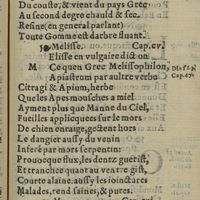 Du couste, & vient du pays Grec
Au second degre chauld & sec.
Resine (en general parlant)
Toute Gomme est d'arbre fluant.
Melisse. Cap. cv.
Elisse en vulgaire dict on
M Ce qu'en Grec Melissophilon,
Apiastrom par aultre verbo
Citragi & Apium, herbe
Queles Apes mousches a miel
Ayment plus que Manne du Ciel,
Fueilles applicquees sur le mors
De chien enraige, gettent hors
Le dangier aussy du venin
Inferé par mors serpentin:
Prouocque flux, les dentz guerist,
Et trancheyson qui au ventre gist,
Courte alaine, aussy les ioinctures
Malades, rend saines, & pures.